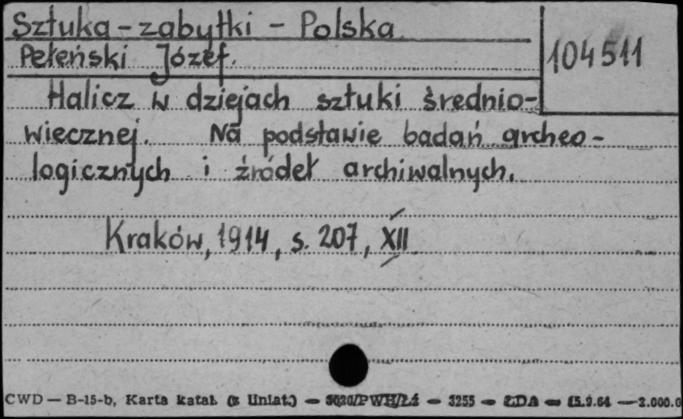 Sztuka - zabytki - Polska
104511
Pełeński Józef.
Halicz w dziejach sztuki średnio-
wiecznej. Na podstawie badań archeo-
logicznych i źródeł archiwalnych.
Kraków, 1914, s. 207, XII
CWD — B-15-b, Karta katal. (z Uniat.) — PWH/Łź — 3255 — ŁDA — 15.9.64 — 2.000.0